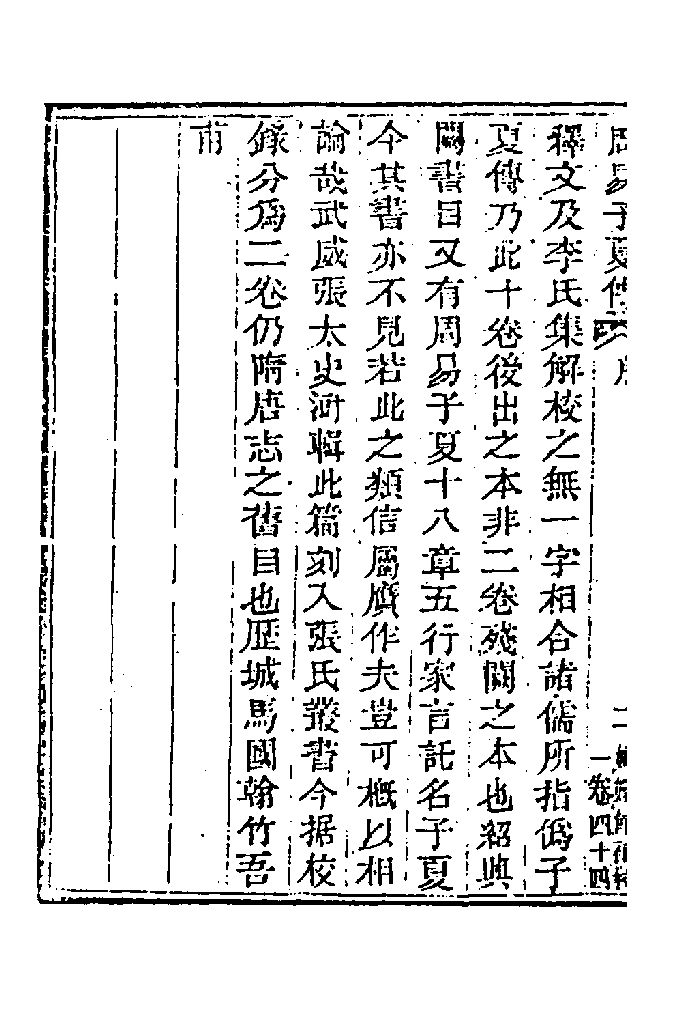 周易子夏傳 序 二 卷四十四
釋文及李氏集解校之無一字相合諸儒所指僞子
夏傳乃此十卷後出之本非二卷殘闕之本也紹興
闕書目又有周易子夏十八章五行家言託名子夏
今其書亦不見若此之類信屬贋作夫豈可槪以相
論哉武威張太史澍輯此篇刻入張氏叢書今据校
錄分爲二卷仍隋唐志之舊目也歷城馬國翰竹吾
甫